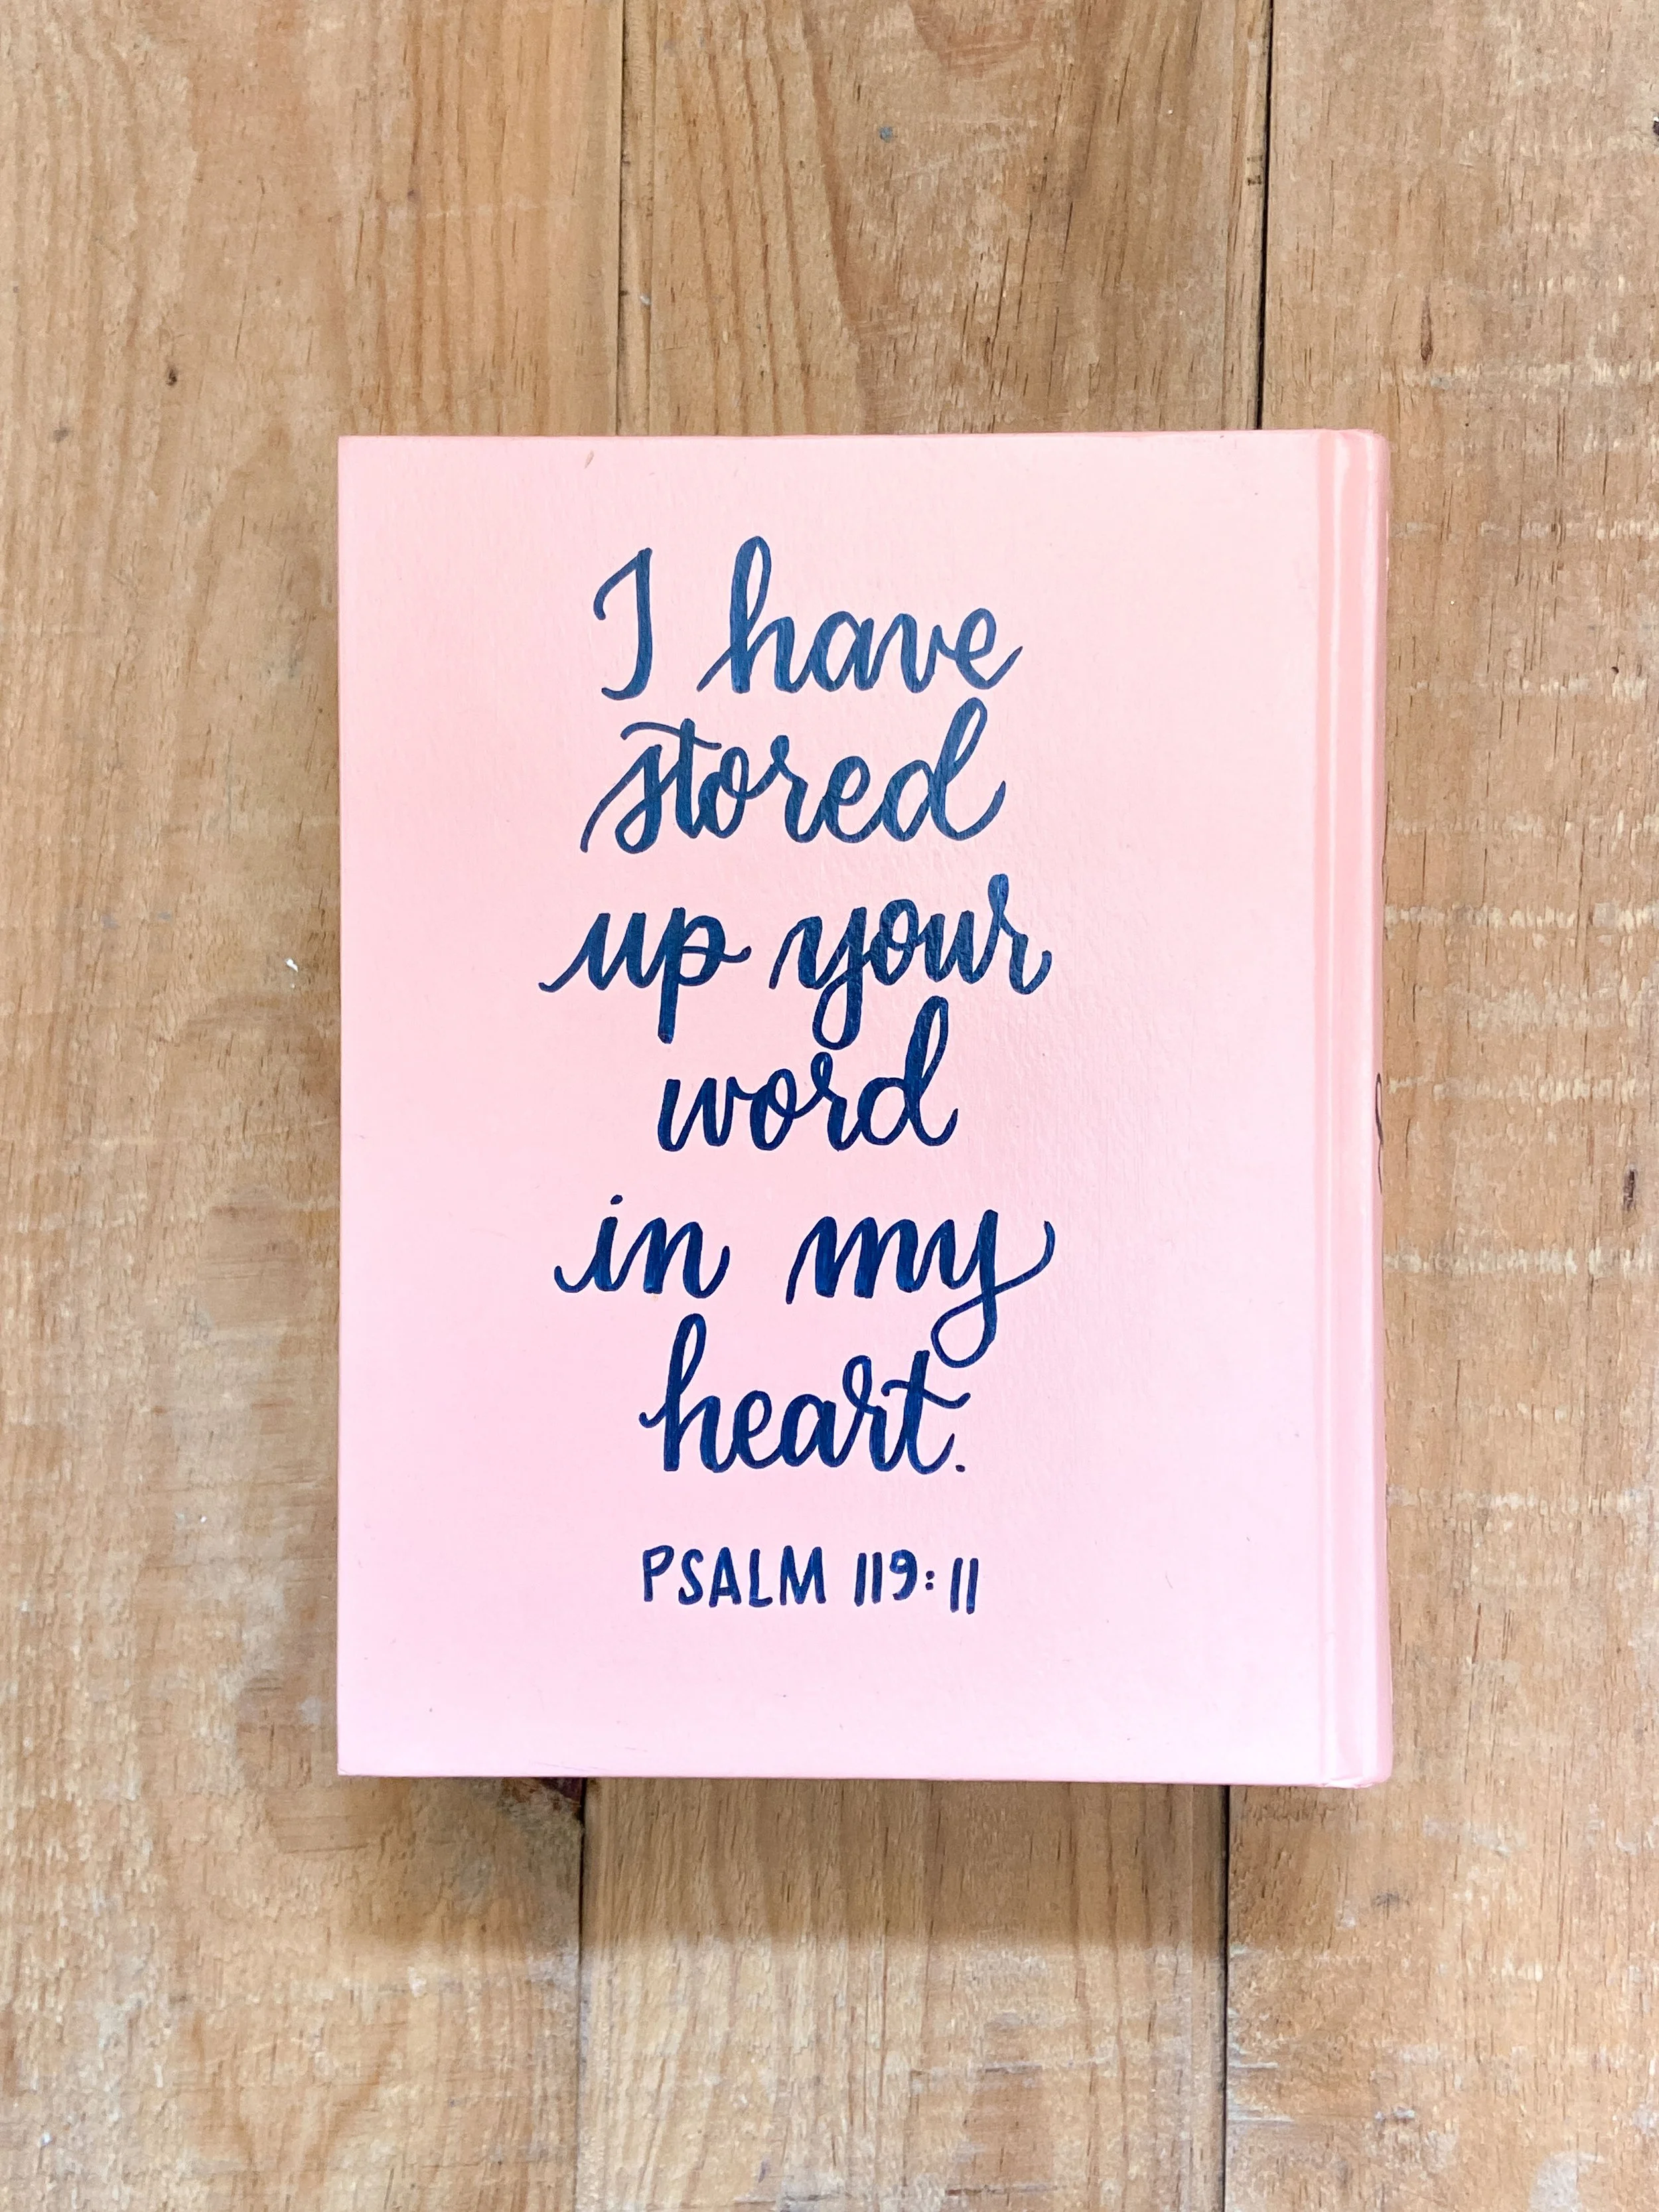 I have
stored
up your
word
in my
heart.
PSALM 119:11